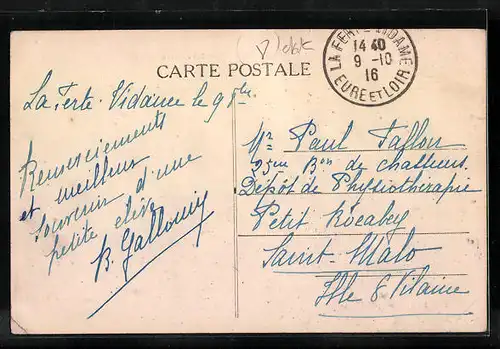 CARTE POSTALE
LA FERTE VIDAME
14 40
9-10
16
EURE ET LOIR
La Ferte-Vidame le 9 8bre
Remerciements
et meilleur
souvenir d'une
petite élève
B. Gallouin
Mr Paul Fallon
25eme Bon de chasseurs
Dépôt de Physiotherapie
Petit Rocabey
Saint-Malo
Ille & Vilaine